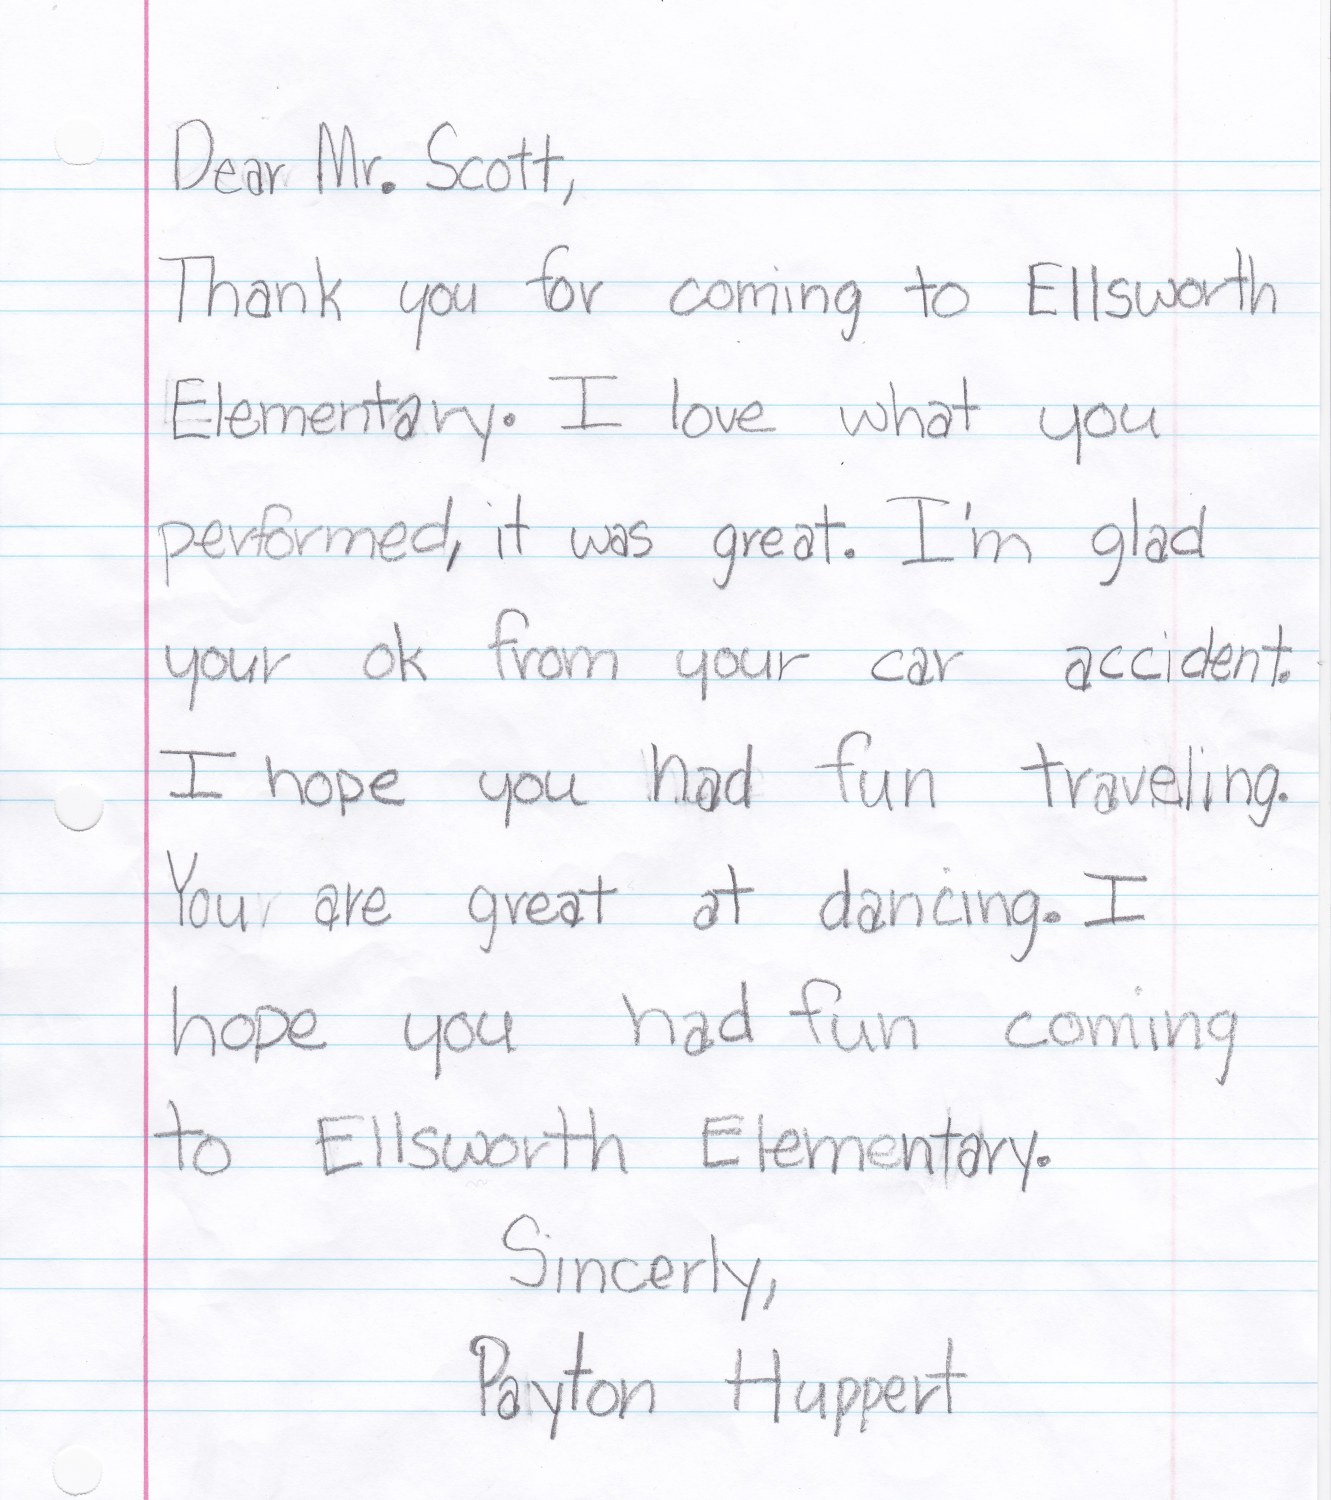 Dear Mr. Scott,
Thank you for coming to Ellsworth
Elementary. I love what you
performed, it was great. I'm glad
your ok from your car accident.
I hope you had fun traveling.
You are great at dancing. I
hope you had fun coming
to Ellsworth Elementary.
Sincerly,
Payton Huppert